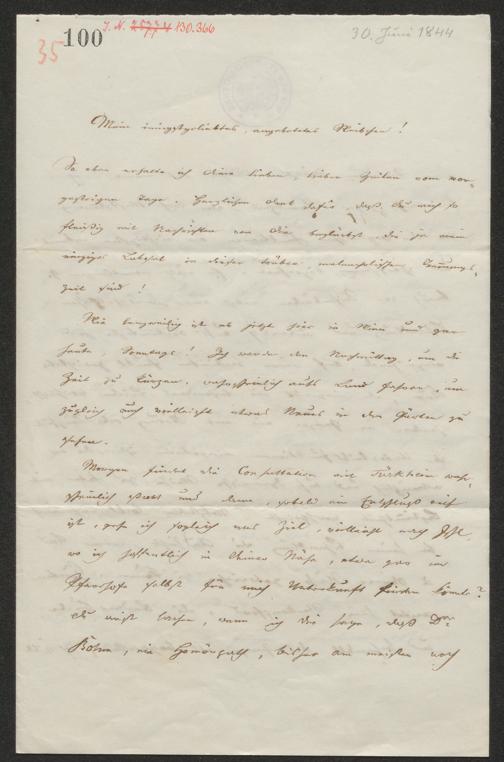 100
I. N. 130.366
35
30. Juni 1844
Mein innigstgeliebtes, angebetetes Weibchen!
So eben erhalte ich deine lieben, lieben Zeilen vom vor-
gestrigen Tage. Herzlichen Dank dafür, daß du mich so
fleißig mit Nachrichten von dir beglückst, die ja mein
einziges Labsal in dieser trüben, melancholischen Trennungs-
zeit sind!
Wie langweilig ist es jetzt hier in Wien und gar
heute, Sonntags! Ich werde den Nachmittag, um die
Zeit zu kürzen, wahrscheinlich aufs Land fahren, um
zugleich auch vielleicht etwas Neues in den zu
sehen.
Morgen findet die Consultation mit Türkheim wahr-
scheinlich statt und dann, sobald ein Entschluß reif
ist, gehe ich sogleich ans Ziel, vielleicht nach Ischl,
wo ich hoffentlich in deiner Nähe, etwa gar im
Pfarrhofe selbst für mich Unterkunft finden könnte?
Du wirst lachen, wenn ich dir sage, daß Dor
Böhm, ein Homöopath, bisher am meisten noch